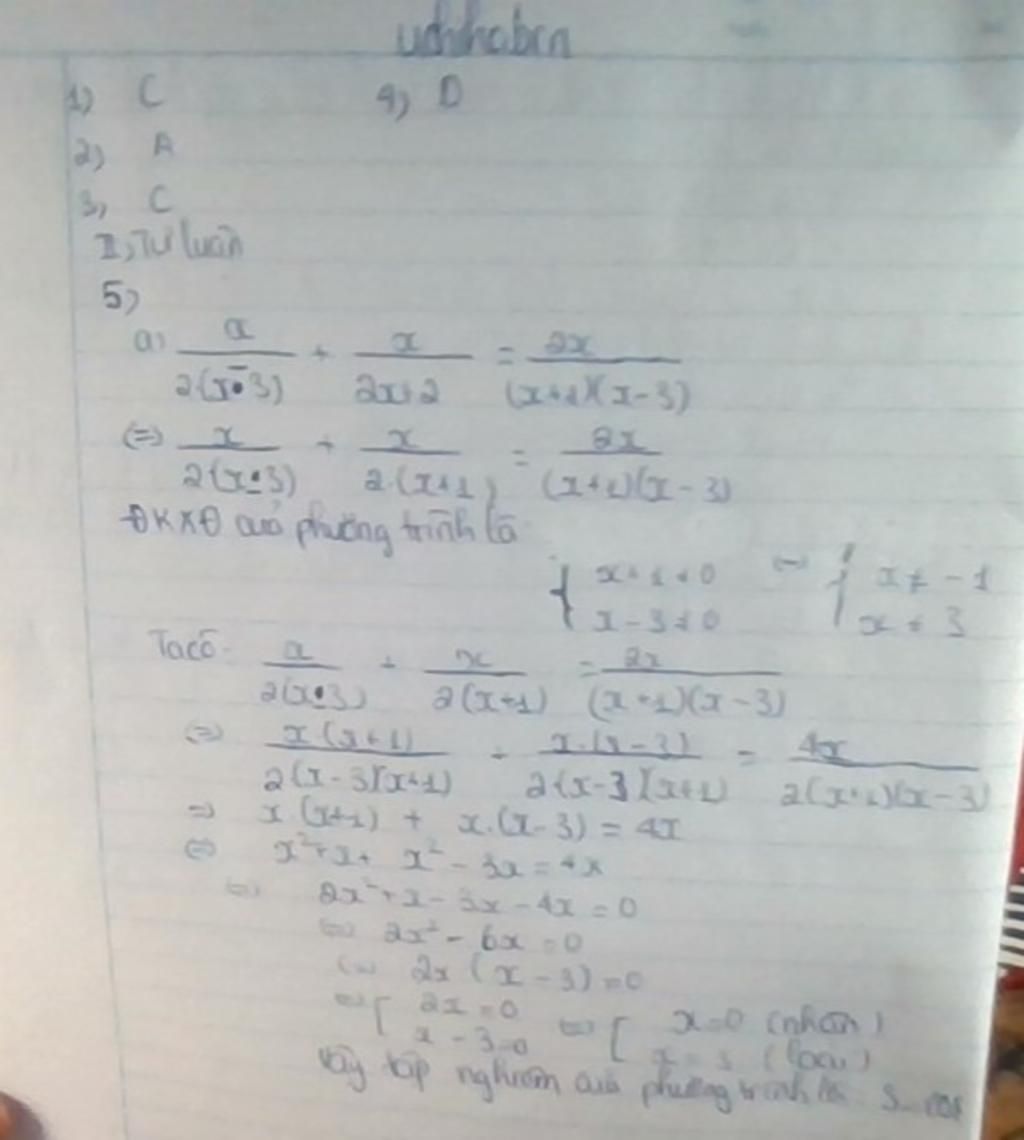 1) C 4) D
2) A
3, C
II, Tự luận
5)
a) x/2(x-3) + x/2x+2 = 2x/(x+1)(x-3)
(=) x/2(x-3) + x/2.(x+1) = 2x/(x+1)(x-3)
ĐKXĐ của phương trình là
{ x+1≠0 x-3≠0 <=> { x≠-1 x≠3
Ta có x/2(x-3) + x/2(x+1) = 2x/(x+1)(x-3)
<=> x.(x+1)/2(x-3)(x+1) + x.(x-3)/2(x-3)(x+1) = 4x/2(x+1)(x-3)
=> x.(x+1) + x.(x-3) = 4x
<=> x²+x+ x²-3x=4x
<=> 2x²+x-3x-4x=0
<=> 2x²-6x=0
<=> 2x(x-3)=0
<=> [ 2x=0 x-3=0 <=> [ x=0 (nhận) x=3 (loại)
Vậy tập nghiệm của phương trình là S=